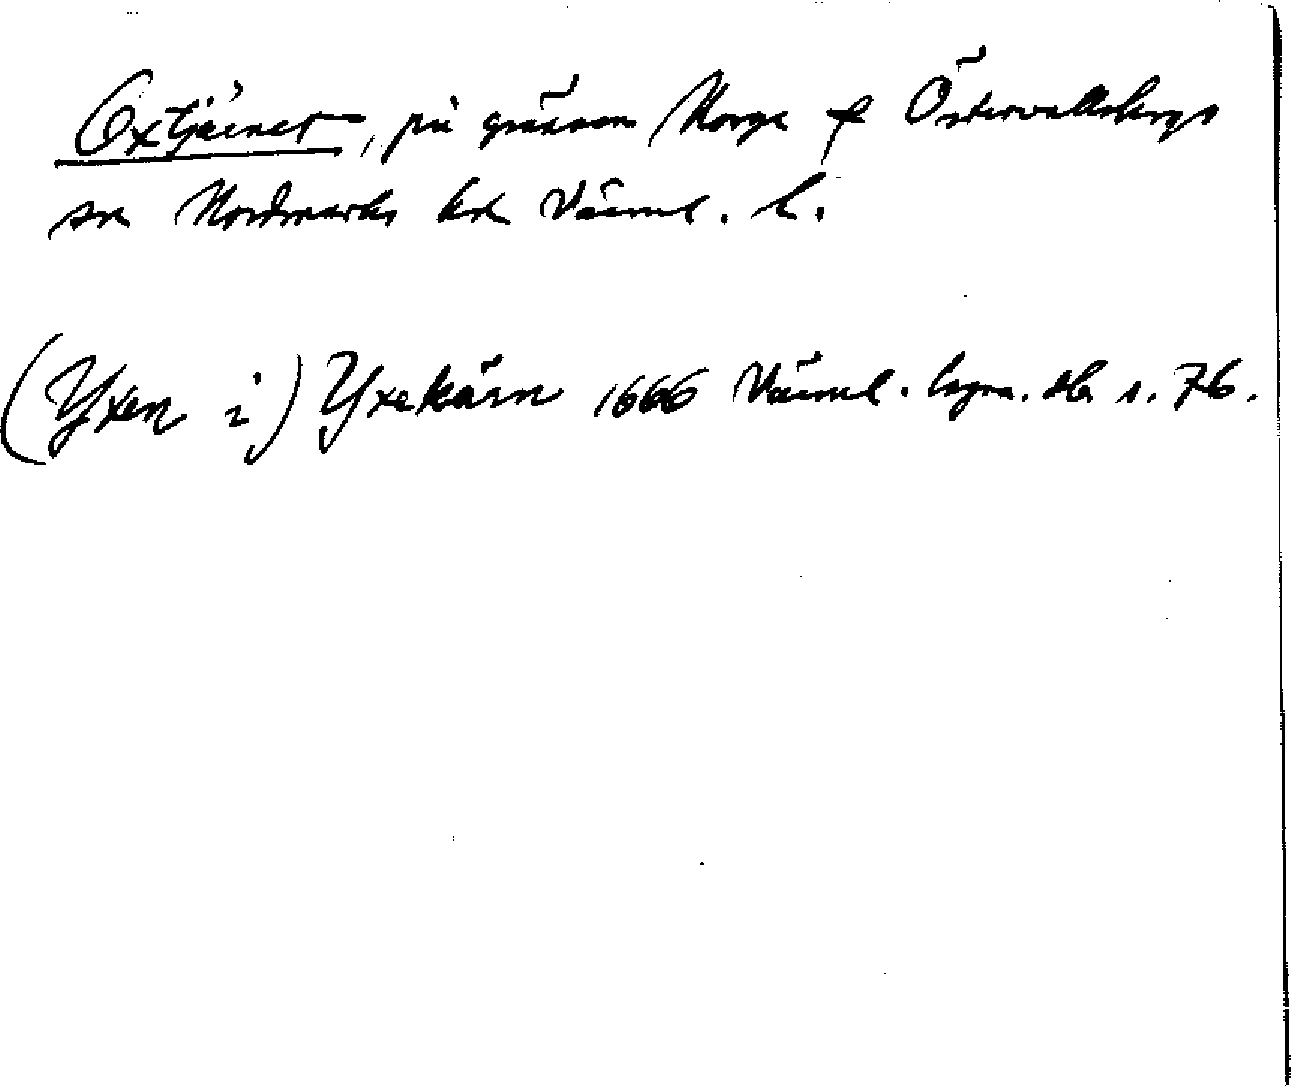 Oxtjärnet, på gränsen Norge & Östervallskogs
sn Nordmarks hd Värml. l.
(Yxen i) Yxekärn 1666 Värml. hyns. db s. 76.